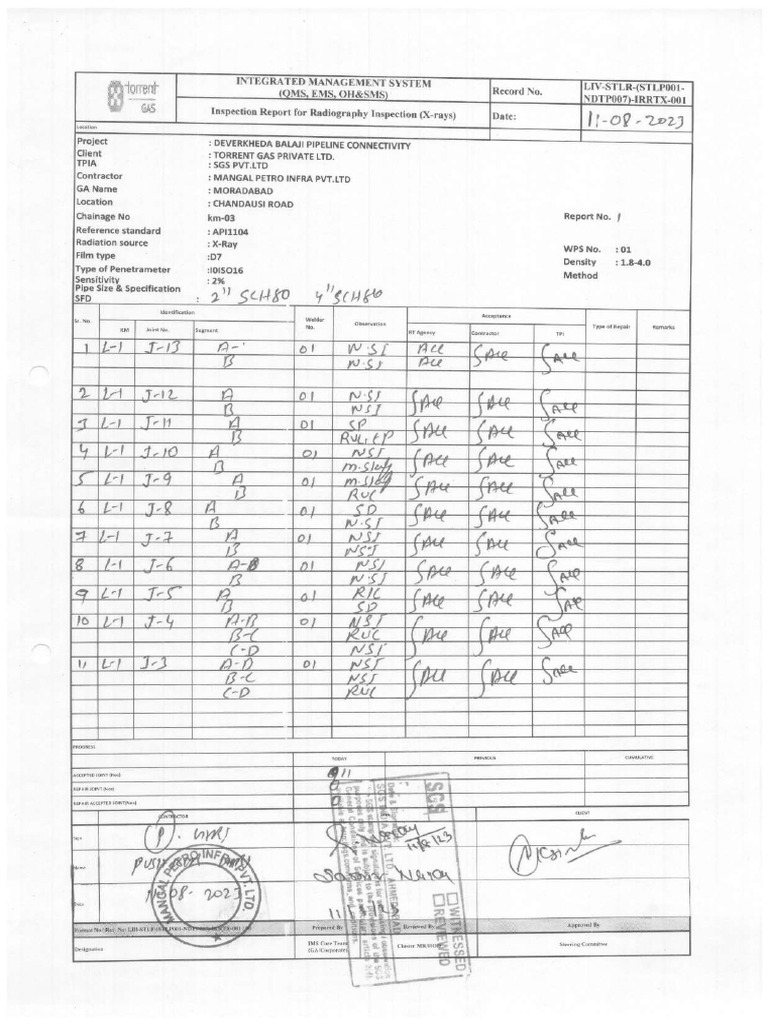 torrent
GAS
INTEGRATED MANAGEMENT SYSTEM
(QMS, EMS, OH&SMS)
Record No.
LIV-STLR-(STLP001-
NDTP007)-IRRTX-001
Inspection Report for Radiography Inspection (X-rays)
Date:
11-08-2023
Location
Project : DEVERKHEDA BALAJI PIPELINE CONNECTIVITY
Client : TORRENT GAS PRIVATE LTD.
TPIA : SGS PVT.LTD
Contractor : MANGAL PETRO INFRA PVT.LTD
GA Name : MORADABAD
Location : CHANDAUSI ROAD
Chainage No km-03 Report No. 1
Reference standard : API1104
Radiation source : X-Ray WPS No. : 01
Film type :D7 Density : 1.8-4.0
Type of Penetrameter :I0ISO16 Method
Sensitivity : 2%
Pipe Size & Specification
SFD : 2" SCH80 4" SCH80
Sr. No. Identification Welder No. Observation Acceptance Type of Repair Remarks
KM Joint No. Segment RT Agency Contractor TPI
1 L-1 J-13 A- 01 N.SI ACC ACC ACC
B N.SI ACC
2 L-1 J-12 A 01 N.SI ACC ACC ACC
B NSI
3 L-1 J-11 A 01 SP ACC ACC ACC
B RUC, EP
4 L-1 J-10 A 01 NSI ACC ACC ACC
B M.Slag
5 L-1 J-9 A 01 M.Slag ACC ACC ACC
B RUC
6 L-1 J-8 A 01 SD ACC ACC ACC
B N.SI
7 L-1 J-7 A 01 NSI ACC ACC ACC
B NSI
8 L-1 J-6 A-B 01 NSI ACC ACC ACC
B N.SI
9 L-1 J-5 A 01 RIC ACC ACC ACC
B SD
10 L-1 J-4 A-B 01 NSI ACC ACC ACC
B-C RUC
C-D NSI
11 L-1 J-3 A-B 01 NSI ACC ACC ACC
B-C NSI
C-D RUC
PROGRESS
TODAY PREVIOUS CUMULATIVE
ACCEPTED JOINT (Nos) 11
REPAIR JOINT (Nos) 0
REPAIR ACCEPTED JOINT(Nos) 0
CONTRACTOR CLIENT
Sign
11/8/23
Name
Date 11-08-2023
MANGAL PETRO INFRA PVT. LTD.
SGS
SGS INDIA PVT. LTD. AHMEDABAD
WITNESSED
REVIEWED
Prepared By Reviewed By Approved By
Designation IMS Core Team Steering Committee
(GA/Corporate)